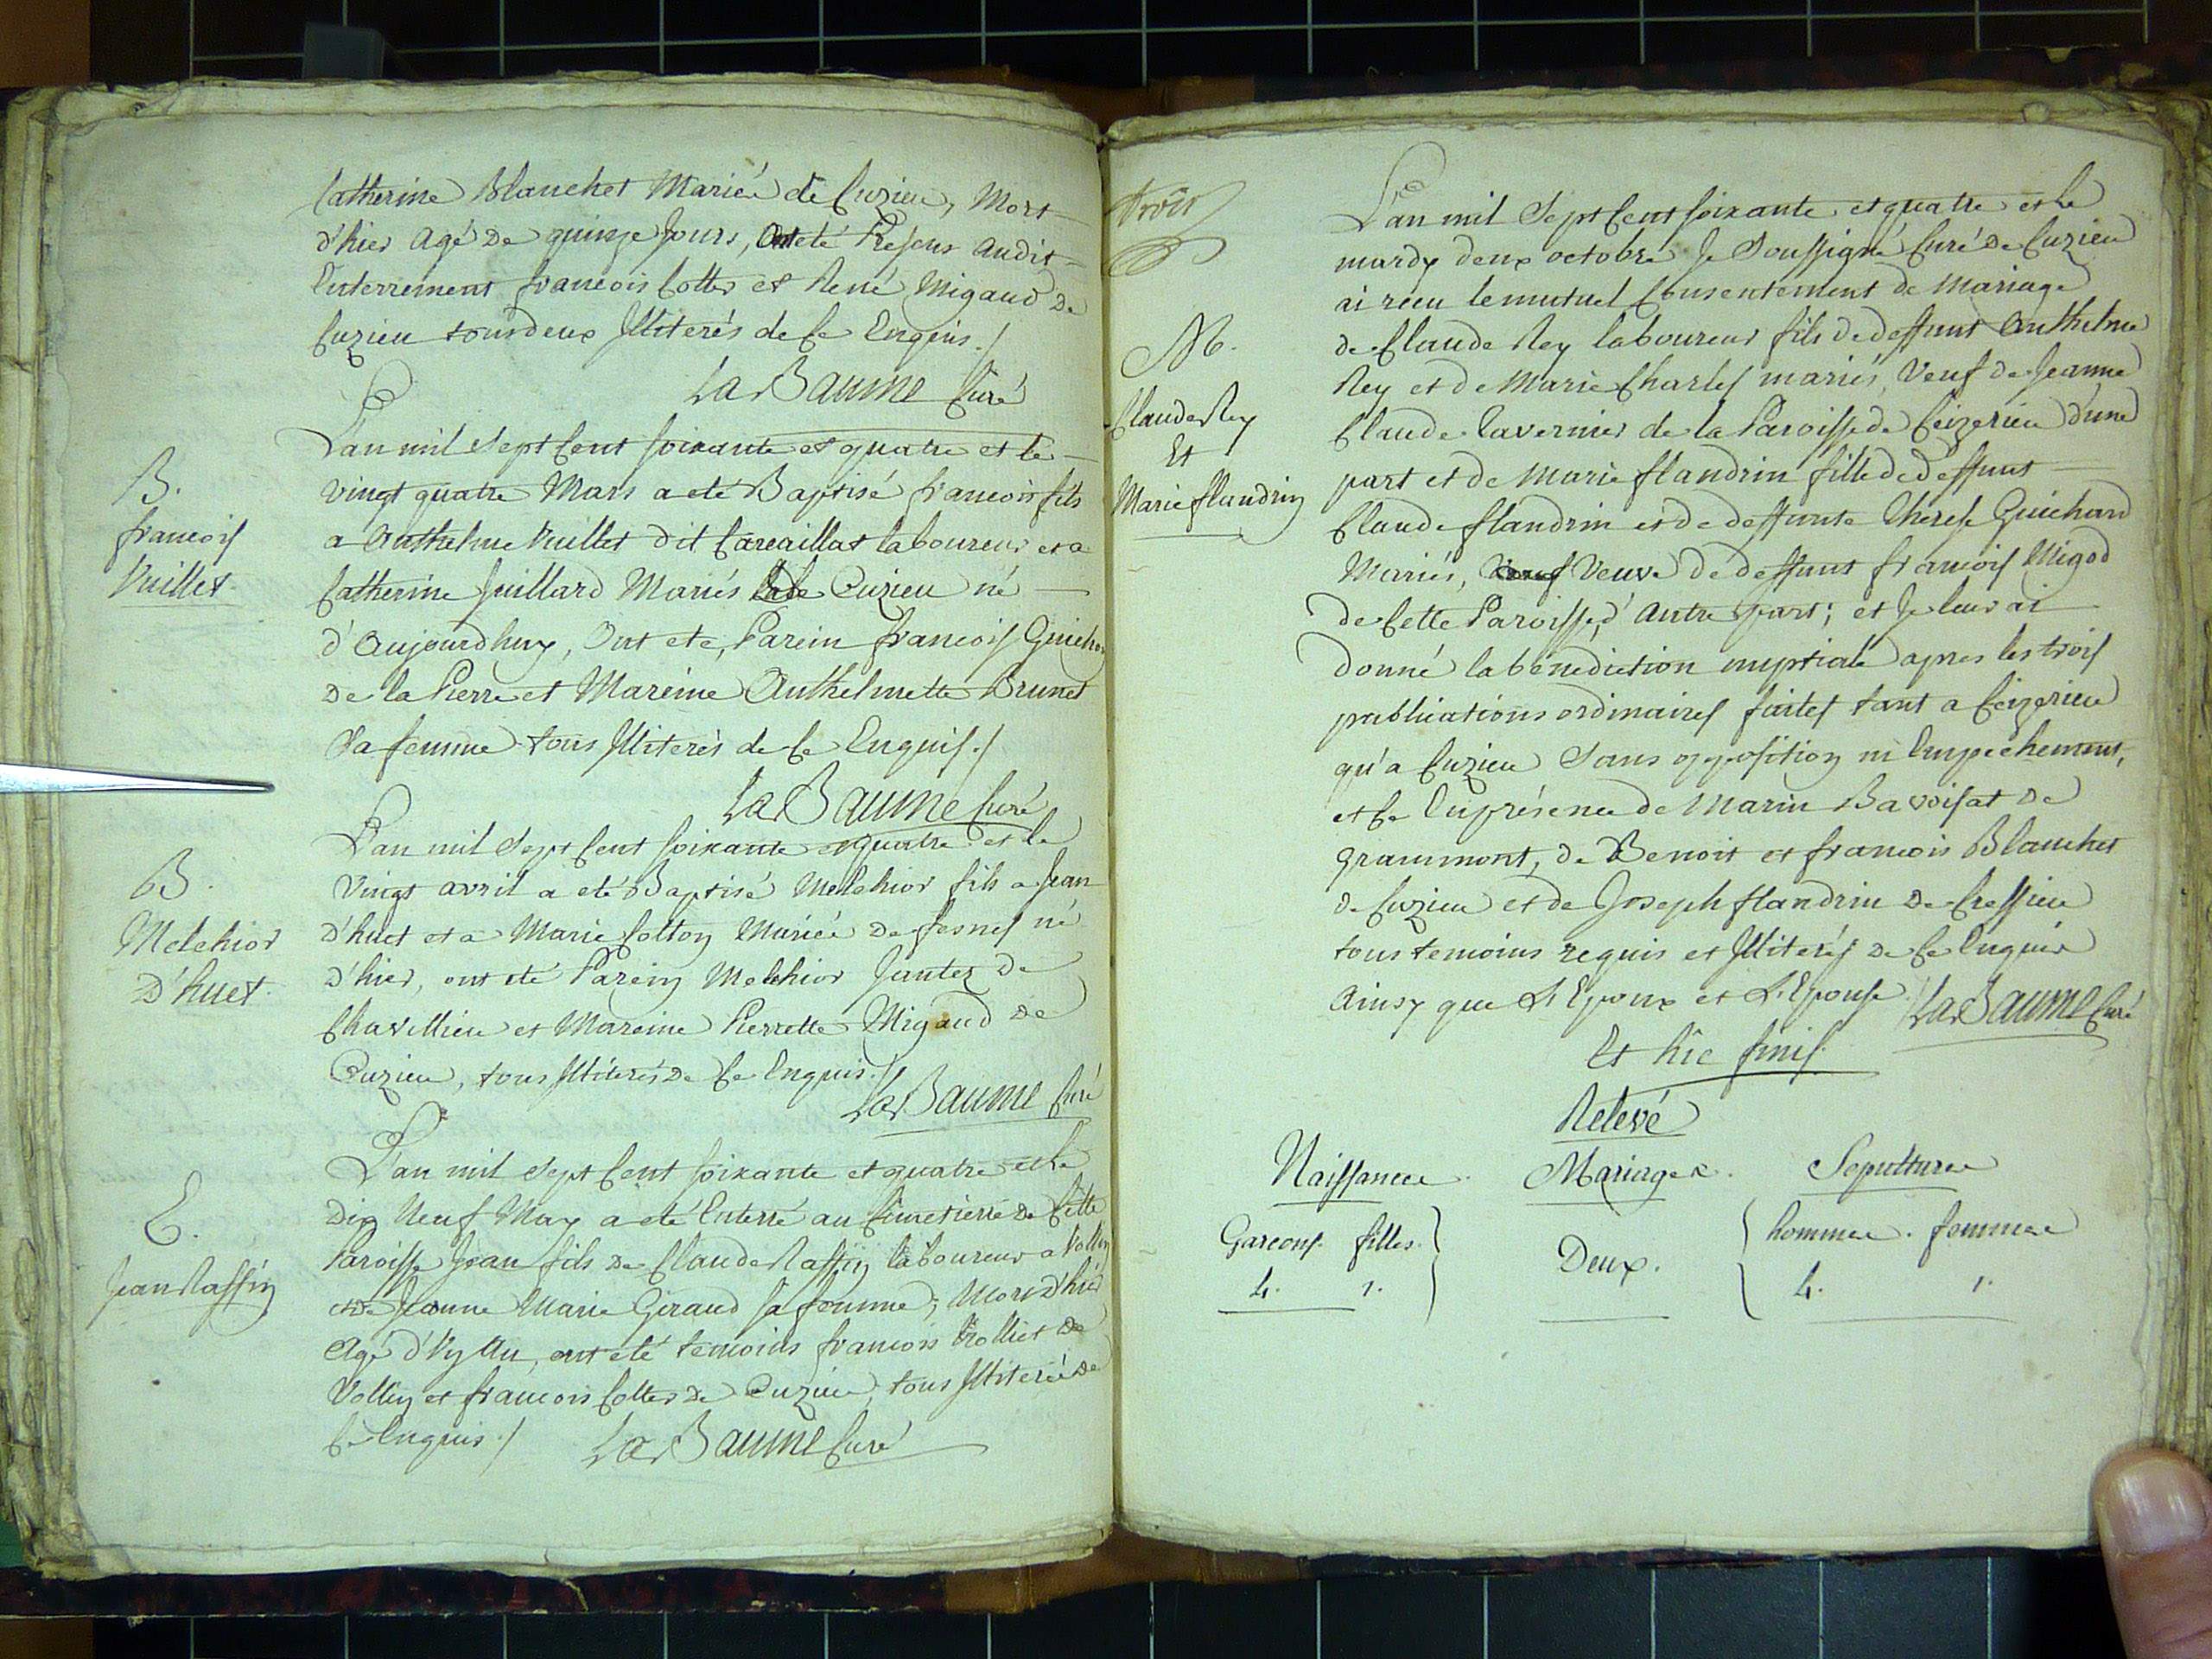 Catherine Blanchet Mariés de Cuzieu, Mort
d'hier Agé De quinze Jours, Ont eté Presens Audit
Enterrement francois Cotter et René Migaud De
Cuzieu tous deux Illiterés de Ce Enquis ./
La Baume Curé
B.
francois
Vuillet.
L'an mil Sept Cent soixante et quatre et le
vingt quatre Mars a eté Baptisé francois fils
a Anthelme Vuillet dit Carcaillat laboureur et a
Catherine Juillard Mariés de Cuzieu né
d'Aujourdhuy, Ont eté, Parein francois Guichon
De la Pierre et Mareine Anthelmette Brunet
Sa femme tous Illiterés de Ce Enquis ./
La Baume Curé
B.
Melchior
D'huet.
L'an mil Sept Cent soixante et quatre et le
Vingt avril a eté Baptisé Melchior fils a Jean
D'huet et a Marie Cotton Mariés De fesnes né
d'hier, ont eté Parein Melchior Juntez De
Chavillieu et Mareine Pierrette Migaud De
Cuzieu, tous Illiterés De Ce Enquis ./
La Baume Curé
E.
Jean Raffin
L'an mil Sept Cent soixante et quatre et le
Dix Neuf May a eté Enterré au Cimetierre De Cette
Paroisse Jean fils De Claude Raffin laboureur a Vollin
et De Jeanne Marie Giraud sa femme; Mort D'hier
Agé d'Un An, ont eté temoins francois Trolliet De
Vollin et francois Cotter De Cuzieu tous Illiterés De
Ce Enquis ./ La Baume Curé
trois
M.
Claude Rey
Et
Marie flandrin
L'an mil Sept Cent soixante et quatre et le
mardy deux octobre Je Soussigné Curé De Cuzieu
ai recu le mutuel Consentement de Mariage
de Claude Rey laboureur fils de deffunt Anthelme
Rey et de Marie Charles mariés, Veuf de Jeanne
Claude Tavernier de la Paroisse de Ceizerieu d'une
part et de Marie flandrin fille de deffunt
Claude flandrin et de deffunte Therese Guichard
Mariés, Veuve de deffunt francois Migod
de Cette Paroisse, d'Autre part; et Je leur ai
donné la bénédiction nuptiale apres les trois
publications ordinaires faites tant a Ceizerieu
qu'a Cuzieu Sans opposition ni Empechement,
et Ce En présence de Marin Bavoisat De
Grammont, de Benoit et francois Blanchet
de Cuzieu et de Joseph flandrin De Cressieu
tous temoins requis et Illiterés De Ce Enquis
Ainsy que L'Epoux et L'Epouse. La Baume Curé
Et hic finis.
Relevé
Naissances. Mariages. Sepultures
Garcons. filles. Deux. hommes. femmes
4. 1. 4. 1.